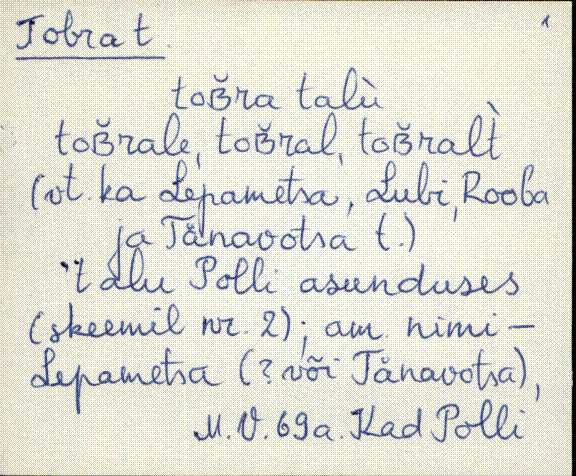 Tobra t.
1
toʙ̆ra talù
toʙ̆rale, toʙ̆ral, toʙ̆ralt̀
(vt. ka Lepametsa, Lubi, Rooba
ja Tänavotsa t.)
talu Polli asunduses
(skeemil nr. 2); am. nimi –
Lepametsa (? või Tänavotsa),
M.V. 69a. Kad Polli